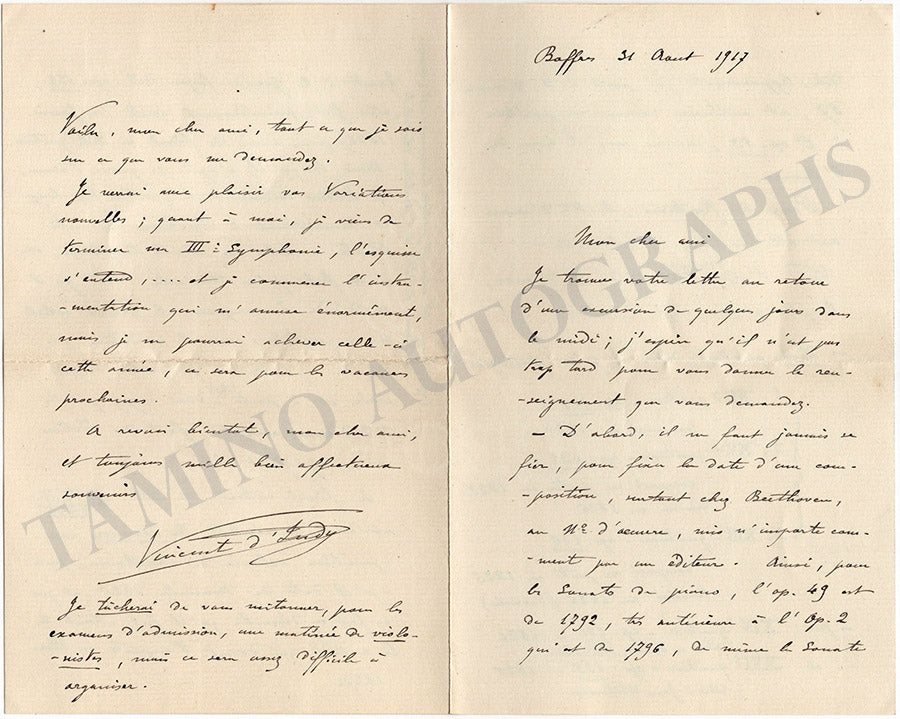 Boffres 31 Aout 1917
Mon cher ami
Je trouve votre lettre au retour
d'une excursion de quelques jours dans
le midi ; j'espère qu'il n'est pas
trop tard pour vous donner le ren-
-seignement que vous demandez.
— D'abord, il ne faut jamais se
fier, pour fixer la date d'une com-
-position, surtout chez Beethoven,
au No d'œuvre, mis n'importe com-
-ment par un éditeur. Ainsi, pour
les Sonates de piano, l'op. 49 est
de 1792, très antérieure à l'Op. 2
qui est de 1796, de même la Sonate
Voilà, mon cher ami, tout ce que je sais
sur ce que vous me demandez.
Je verrai avec plaisir vos Variations
nouvelles ; quant à moi, je viens de
terminer ma IIIe Symphonie, l'esquisse
s'entend, .... et je commence l'instru-
-mentation qui m'amuse énormément,
mais je ne pourrai achever celle-ci
cette année, ce sera pour les vacances
prochaines.
A revoir bientôt, mon cher ami,
et toujours mille bien affectueux
souvenirs
Vincent d'Indy
Je tâcherai de vous mitonner, pour les
examens d'admission, une matinée de violo-
-nistes, mais ce sera assez difficile à
organiser.
TAMINO AUTOGRAPHS